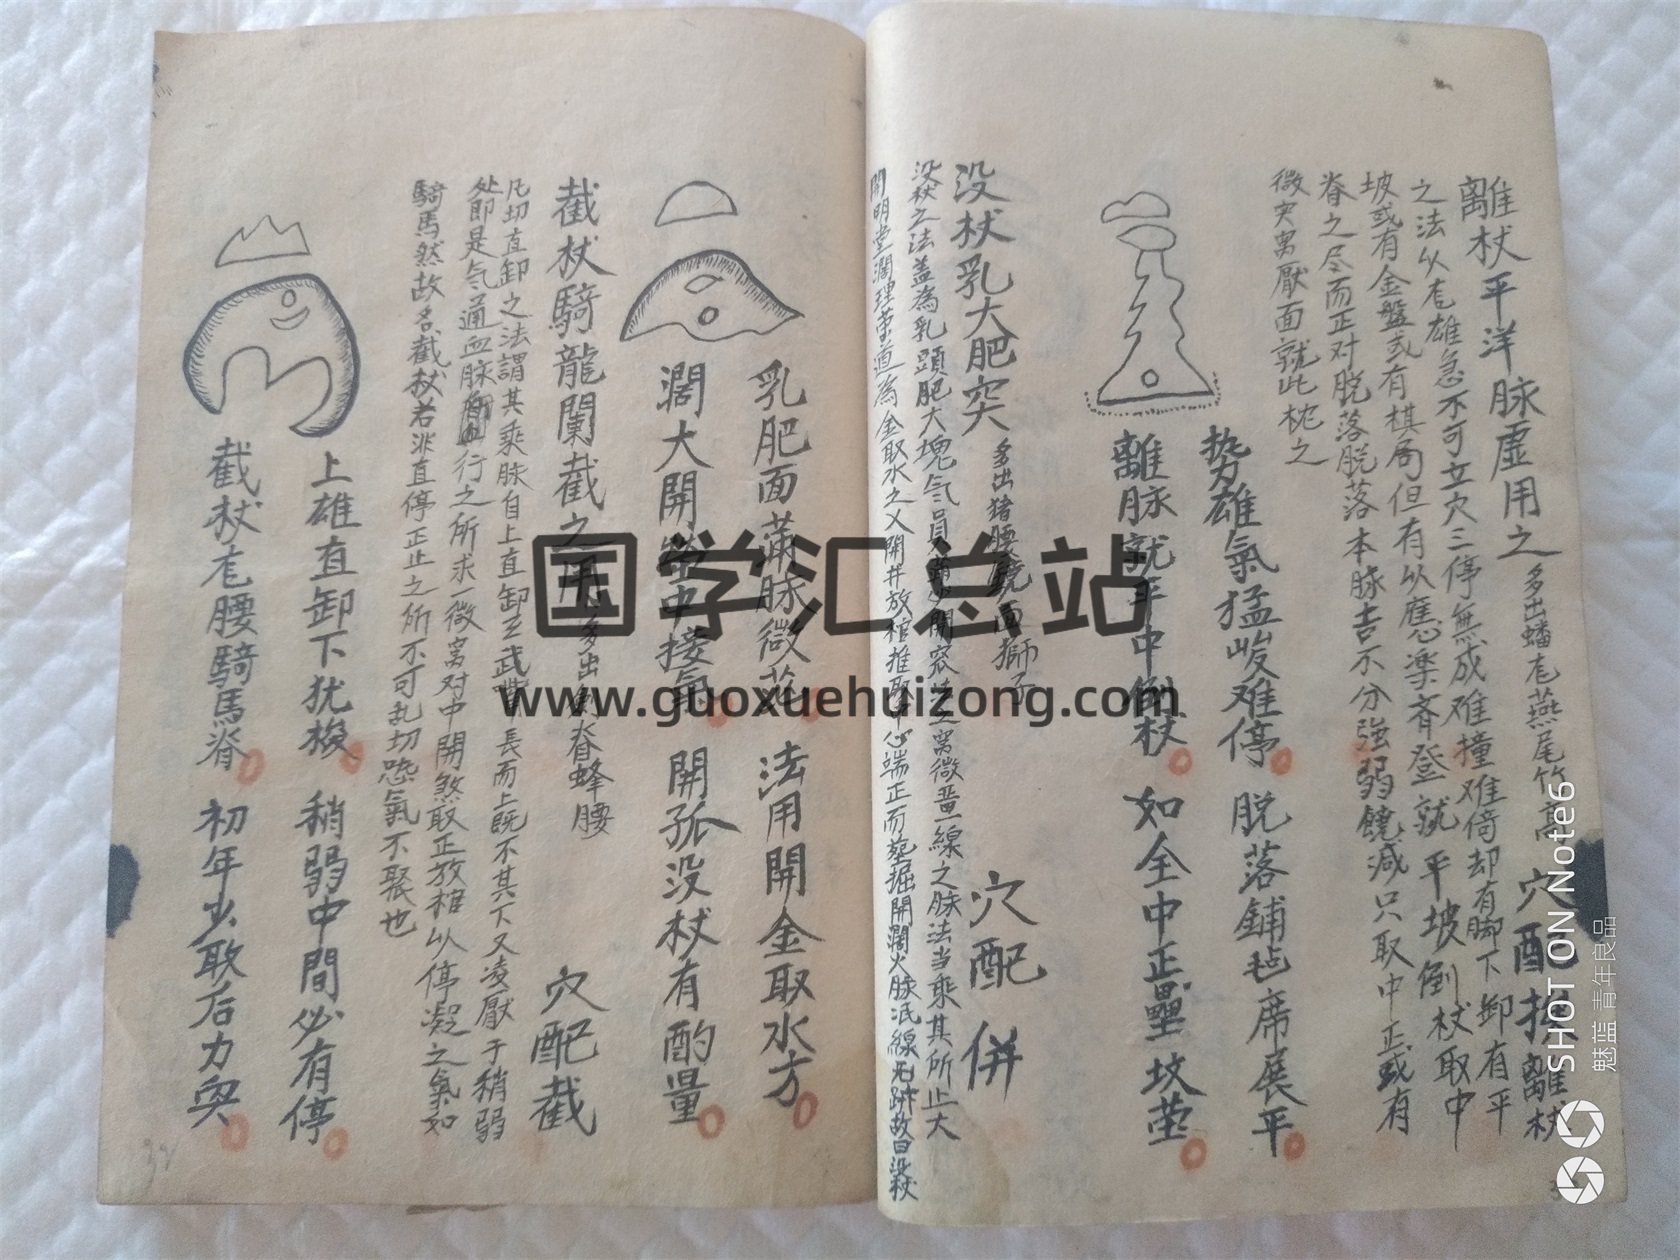 離杖平洋脉虛用之 多出蟠尨燕尾竹高 穴配 離杖
之法以尨雄急不可立穴三停無成难撞难倚却有脚下卸有平
坡或有金盤或有棋局但有以應樂斉登就平坡倒杖取中
脊之尽而正对脱落脱落本脉吉不分強弱饒減只取中正或有
微突窝厭面就此枕之
势雄氣猛峻难停 脱落鋪毡席展平
離脉就平中倒杖 如全中正壘坟茔
没杖乳大肥突 多出猪腰鏡面獅子 穴配併
没杖之法盖為乳頭肥大塊气員 開窩 窝微薑一線之脉法当乘其所止大
開明堂濶理荣道為金取水之义開井放棺推 中心端正而 掘開濶火脉泯線无跡故曰没杖
乳肥面 脉微茫 法用開金取水方
濶大開 中接氣 開孤没杖有酌量
截杖騎龍闌截之用 多出 脊蜂腰 穴配截
凡切直卸之法謂其乘脉自上直卸至武 長而上既不其下又凌厭于稍弱
处即是气通血脉 行之所求一微窝对中開煞取正放棺以停凝之氣如
騎馬然故名截杖若非直停正止之所不可乱切恐氣不聚也
上雄直卸下犹 稍弱中間必有停
截杖尨腰騎馬脊 初年少敢后力
国学汇总站
www.guoxuehuizong.com
SHOT ON Note6
魅蓝 青年良品
32